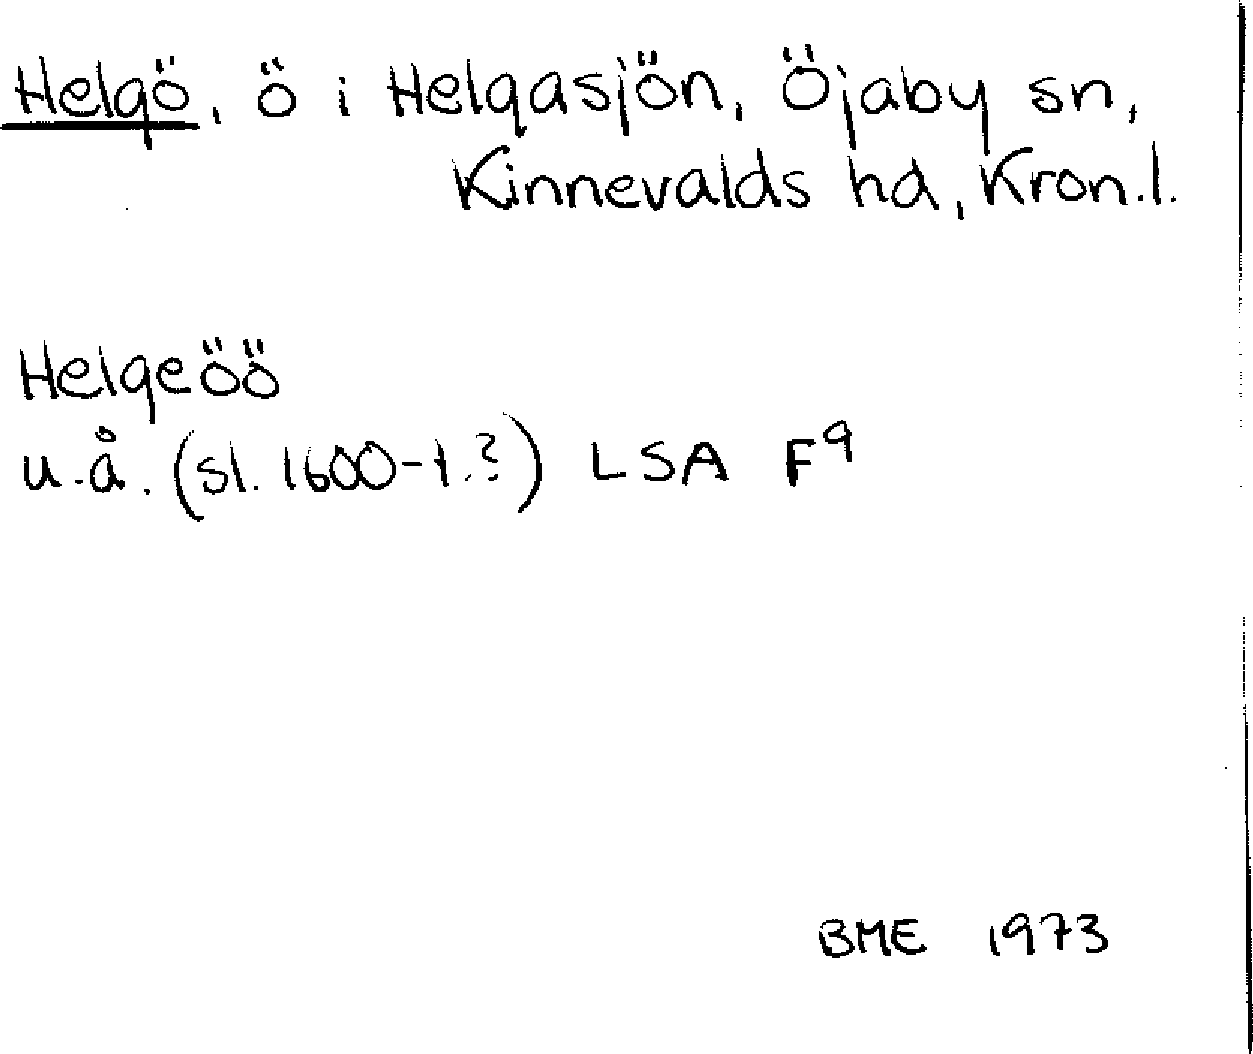 Helgö, ö i Helgasjön, Öjaby sn,
Kinnevalds hd, Kron.l.
Helgeöö
u.å. (sl. 1600-t.?) LSA F9
BME 1973